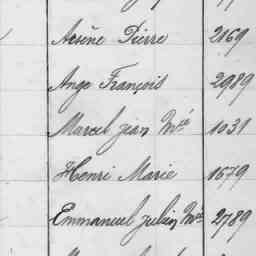 Arsène Pierre 2169
Ange François 2989
Marcel Jean Mie 1031
Henri Marie 1679
Emmanuel Julien Mie 2789